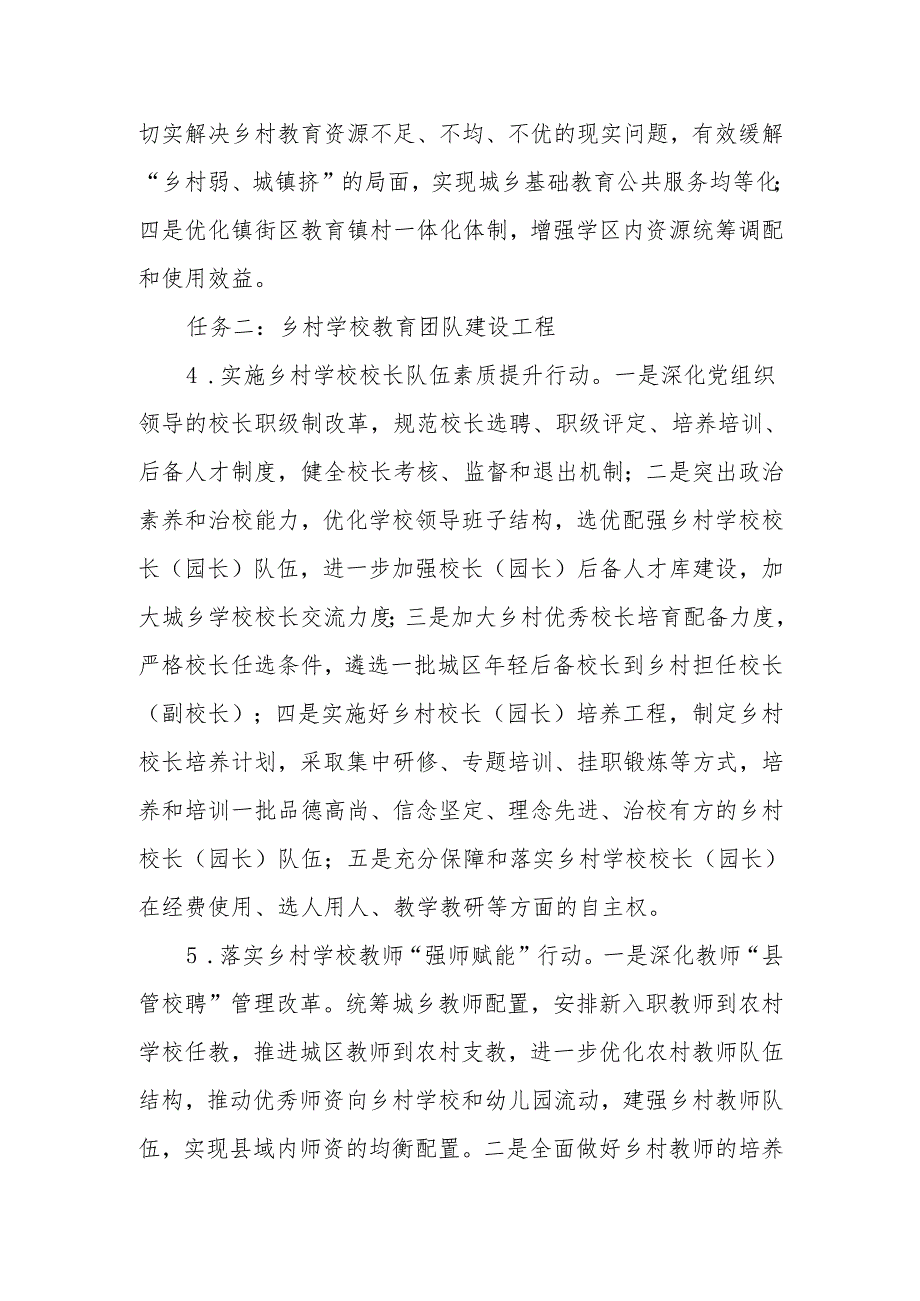 切实解决乡村教育资源不足、不均、不优的现实问题，有效缓解
“乡村弱、城镇挤”的局面，实现城乡基础教育公共服务均等化；
四是优化镇街区教育镇村一体化体制，增强学区内资源统筹调配
和使用效益。
任务二：乡村学校教育团队建设工程
4 .实施乡村学校校长队伍素质提升行动。一是深化党组织
领导的校长职级制改革，规范校长选聘、职级评定、培养培训、
后备人才制度，健全校长考核、监督和退出机制；二是突出政治
素养和治校能力，优化学校领导班子结构，选优配强乡村学校校
长（园长）队伍，进一步加强校长（园长）后备人才库建设，加
大城乡学校校长交流力度；三是加大乡村优秀校长培育配备力度，
严格校长任选条件，遴选一批城区年轻后备校长到乡村担任校长
（副校长）；四是实施好乡村校长（园长）培养工程，制定乡村
校长培养计划，采取集中研修、专题培训、挂职锻炼等方式，培
养和培训一批品德高尚、信念坚定、理念先进、治校有方的乡村
校长（园长）队伍；五是充分保障和落实乡村学校校长（园长）
在经费使用、选人用人、教学教研等方面的自主权。
5 .落实乡村学校教师“强师赋能”行动。一是深化教师“县
管校聘”管理改革。统筹城乡教师配置，安排新入职教师到农村
学校任教，推进城区教师到农村支教，进一步优化农村教师队伍
结构，推动优秀师资向乡村学校和幼儿园流动，建强乡村教师队
伍，实现县域内师资的均衡配置。二是全面做好乡村教师的培养